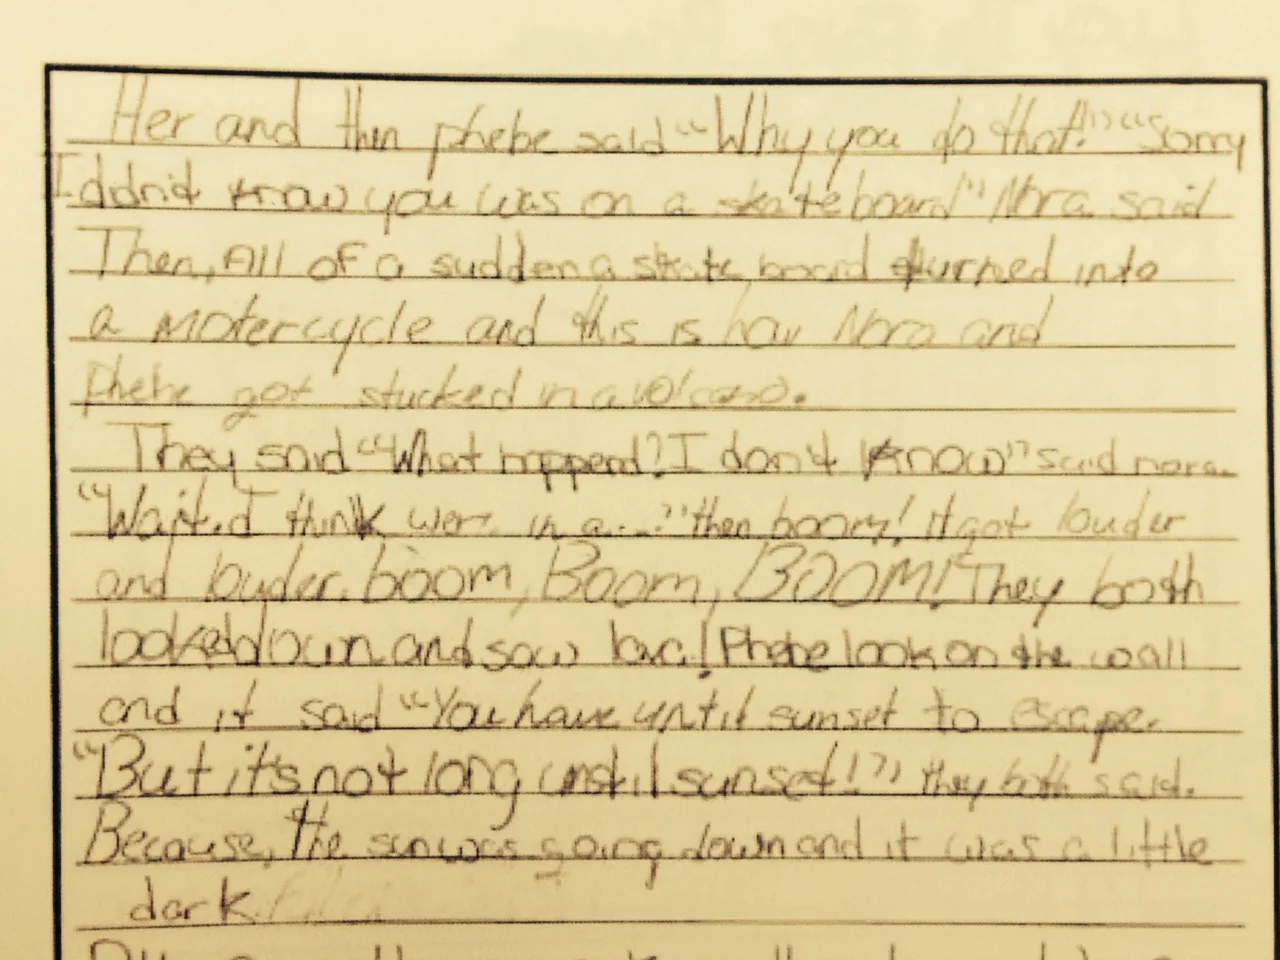 Her and then phebe said "Why you do that!" "Sorry
I ddn't know you was on a skateboard" Nora said
Then, All of a sudden a skate board turned into
a motercycle and this is how Nora and
Phebe got stucked in a volcano.
They said "What happend? I don't know" said nora.
"Wait. I think were in a...." then boom! It got louder
and louder. boom, Boom, BOOM! They both
looked down and saw lava! Phebe look on the wall
and it said "You have until sunset to escape.
"But it's not long until sunset!" they both said.
Because, the sun was going down and it was a little
dark.